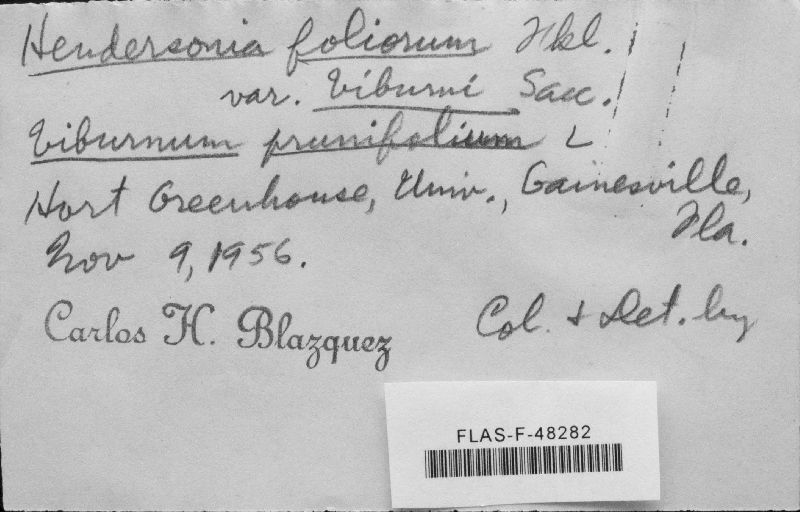 Hendersonia foliorum Fkl.
var. Viburni Sacc.
Viburnum prunifolium L
Hort Greenhouse, Univ., Gainesville,
Fla.
Nov 9, 1956.
Carlos H. Blazquez
Col. & Det. by
FLAS-F-48282